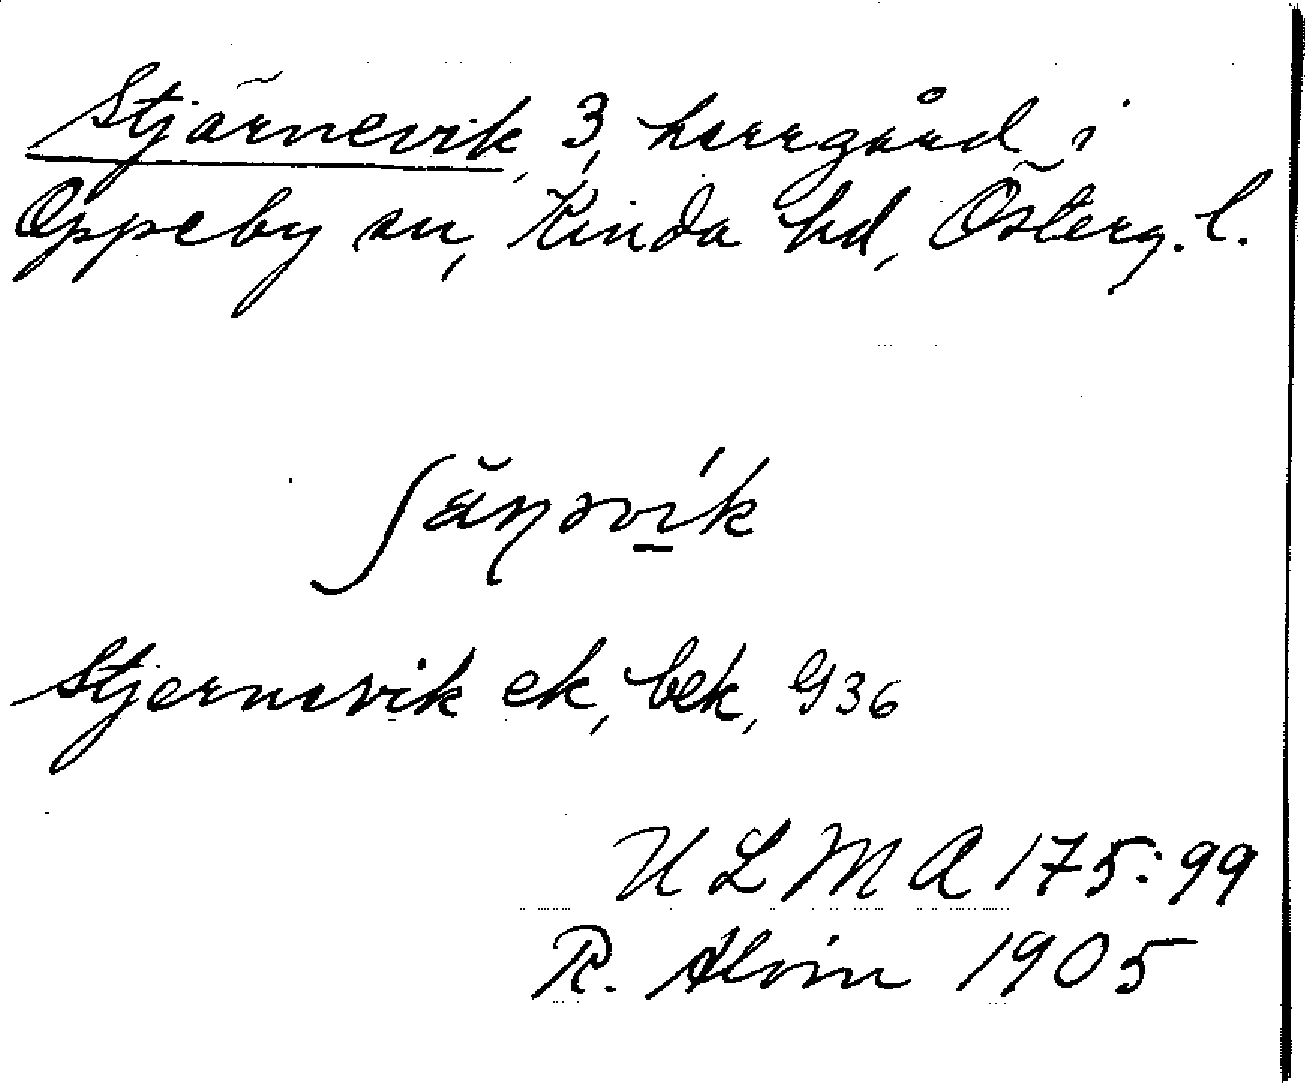 Stjärnevik, 3, herrgård i
Oppeby sn, Kinda hd, Österg. l.
ʃäŋəvik
Stjernevik ek, bek, G36
ULMA 175:99
R. Alvin 1905